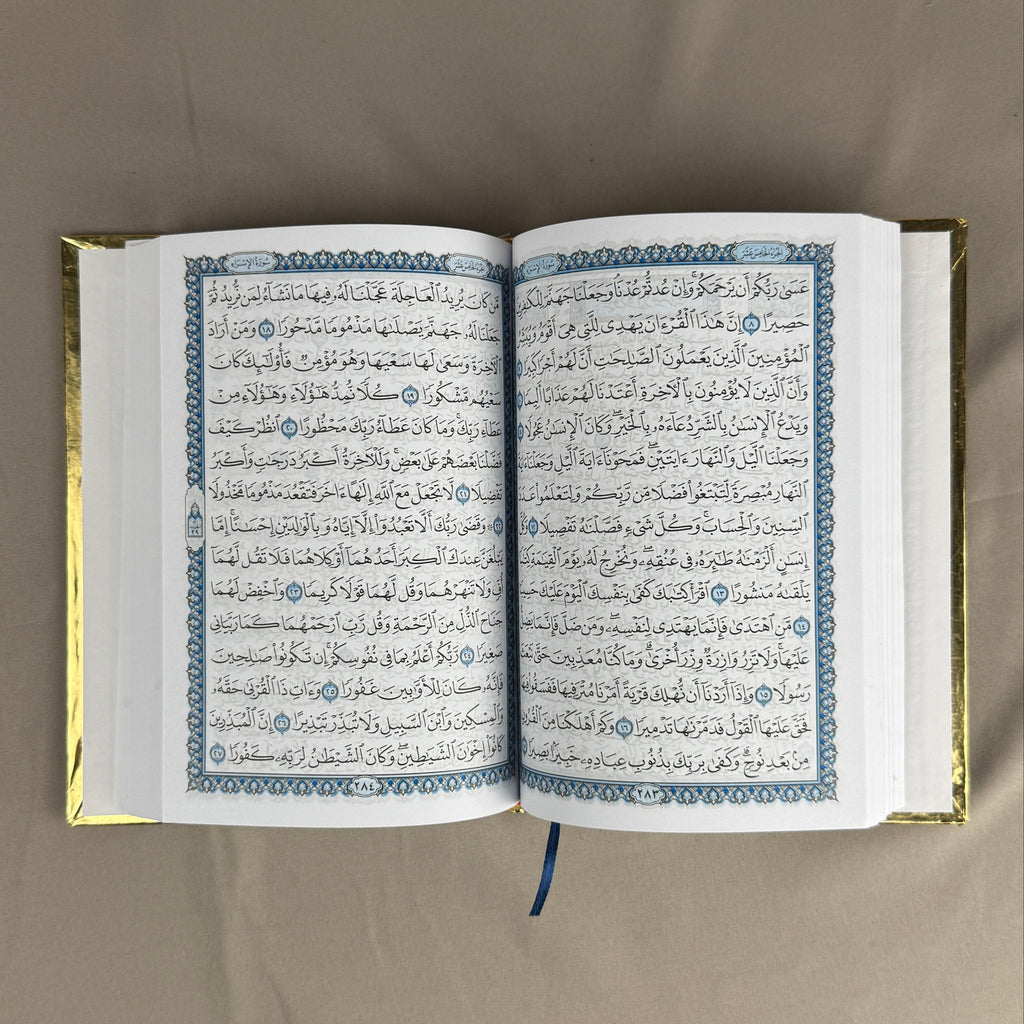 الجزء الخامس عشر
سورة الإسراء
عَسَىٰ رَبُّكُمْ أَن يَرْحَمَكُمْ ۚ وَإِنْ عُدتُّمْ عُدْنَا ۘ وَجَعَلْنَا جَهَنَّمَ لِلْكَٰفِرِينَ
حَصِيرًا ٨ إِنَّ هَٰذَا ٱلْقُرْءَانَ يَهْدِى لِلَّتِى هِىَ أَقْوَمُ
ٱلْمُؤْمِنِينَ ٱلَّذِينَ يَعْمَلُونَ ٱلصَّٰلِحَٰتِ أَنَّ لَهُمْ أَجْرًا كَبِيرًا
وَأَنَّ ٱلَّذِينَ لَا يُؤْمِنُونَ بِٱلْءَاخِرَةِ أَعْتَدْنَا لَهُمْ عَذَابًا أَلِيمًا
وَيَدْعُ ٱلْإِنسَٰنُ بِٱلشَّرِّ دُعَآءَهُۥ بِٱلْخَيْرِ ۖ وَكَانَ ٱلْإِنسَٰنُ عَجُولًا
وَجَعَلْنَا ٱلَّيْلَ وَٱلنَّهَارَ ءَايَتَيْنِ ۖ فَمَحَوْنَآ ءَايَةَ ٱلَّيْلِ وَجَعَلْنَآ
ٱلنَّهَارِ مُبْصِرَةً لِّتَبْتَغُوا۟ فَضْلًا مِّن رَّبِّكُمْ وَلِتَعْلَمُوا۟ عَدَدَ
ٱلسِّنِينَ وَٱلْحِسَابَ ۚ وَكُلَّ شَىْءٍ فَصَّلْنَٰهُ تَفْصِيلًا ١٢
إِنسَٰنٍ أَلْزَمْنَٰهُ طَٰٓئِرَهُۥ فِى عُنُقِهِۦ ۖ وَنُخْرِجُ لَهُۥ يَوْمَ ٱلْقِيَٰمَةِ
يَلْقَىٰهُ مَنشُورًا ١٣ ٱقْرَأْ كِتَٰبَكَ كَفَىٰ بِنَفْسِكَ ٱلْيَوْمَ عَلَيْكَ
١٤ مَّنِ ٱهْتَدَىٰ فَإِنَّمَا يَهْتَدِى لِنَفْسِهِۦ ۖ وَمَن ضَلَّ فَإِنَّمَا يَضِلُّ
عَلَيْهَا ۚ وَلَا تَزِرُ وَازِرَةٌ وِزْرَ أُخْرَىٰ ۗ وَمَا كُنَّا مُعَذِّبِينَ حَتَّىٰ نَبْعَثَ
رَسُولًا ١٥ وَإِذَآ أَرَدْنَآ أَن نُّهْلِكَ قَرْيَةً أَمَرْنَا مُتْرَفِيهَا فَفَسَقُوا۟ فِيهَا
فَحَقَّ عَلَيْهَا ٱلْقَوْلُ فَدَمَّرْنَٰهَا تَدْمِيرًا ١٦ وَكَمْ أَهْلَكْنَا مِنَ ٱلْقُرُونِ
مِنۢ بَعْدِ نُوحٍ ۗ وَكَفَىٰ بِرَبِّكَ بِذُنُوبِ عِبَادِهِۦ خَبِيرًۢا بَصِيرًا
٢٨٣
الجزء الخامس عشر
سورة الإسراء
مَّن كَانَ يُرِيدُ ٱلْعَاجِلَةَ عَجَّلْنَا لَهُۥ فِيهَا مَا نَشَآءُ لِمَن نُّرِيدُ ثُمَّ
جَعَلْنَا لَهُۥ جَهَنَّمَ يَصْلَىٰهَا مَذْمُومًا مَّدْحُورًا ١٨ وَمَنْ أَرَادَ
ٱلْءَاخِرَةَ وَسَعَىٰ لَهَا سَعْيَهَا وَهُوَ مُؤْمِنٌ فَأُو۟لَٰٓئِكَ كَانَ
سَعْيُهُم مَّشْكُورًا ١٩ كُلًّا نُّمِدُّ هَٰٓؤُلَآءِ وَهَٰٓؤُلَآءِ مِنْ
عَطَآءِ رَبِّكَ ۚ وَمَا كَانَ عَطَآءُ رَبِّكَ مَحْظُورًا ٢٠ ٱنظُرْ كَيْفَ
فَضَّلْنَا بَعْضَهُمْ عَلَىٰ بَعْضٍ ۚ وَلَلْءَاخِرَةُ أَكْبَرُ دَرَجَٰتٍ وَأَكْبَرُ
تَفْضِيلًا ٢١ لَّا تَجْعَلْ مَعَ ٱللَّهِ إِلَٰهًا ءَاخَرَ فَتَقْعُدَ مَذْمُومًا مَّخْذُولًا
٢٢ ۞ وَقَضَىٰ رَبُّكَ أَلَّا تَعْبُدُوٓا۟ إِلَّآ إِيَّاهُ وَبِٱلْوَٰلِدَيْنِ إِحْسَٰنًا ۚ إِمَّا
يَبْلُغَنَّ عِندَكَ ٱلْكِبَرَ أَحَدُهُمَآ أَوْ كِلَاهُمَا فَلَا تَقُل لَّهُمَآ
أُفٍّ وَلَا تَنْهَرْهُمَا وَقُل لَّهُمَا قَوْلًا كَرِيمًا ٢٣ وَٱخْفِضْ لَهُمَا
جَنَاحَ ٱلذُّلِّ مِنَ ٱلرَّحْمَةِ وَقُل رَّبِّ ٱرْحَمْهُمَا كَمَا رَبَّيَانِى
صَغِيرًا ٢٤ رَّبُّكُمْ أَعْلَمُ بِمَا فِى نُفُوسِكُمْ ۚ إِن تَكُونُوا۟ صَٰلِحِينَ
فَإِنَّهُۥ كَانَ لِلْأَوَّٰبِينَ غَفُورًا ٢٥ وَءَاتِ ذَا ٱلْقُرْبَىٰ حَقَّهُۥ
وَٱلْمِسْكِينَ وَٱبْنَ ٱلسَّبِيلِ وَلَا تُبَذِّرْ تَبْذِيرًا ٢٦ إِنَّ ٱلْمُبَذِّرِينَ
كَانُوٓا۟ إِخْوَٰنَ ٱلشَّيَٰطِينِ ۖ وَكَانَ ٱلشَّيْطَٰنُ لِرَبِّهِۦ كَفُورًا ٢٧
٢٨٤